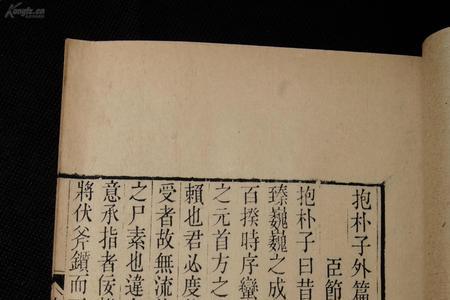 Kongfz.cn
抱朴子外篇
臣節
抱朴子曰昔
臻巍巍之成
百揆時序蠻
之元首方之
賴也君必度
受者故無流
之尸素也違
意承指者佞
將伏斧鑕而